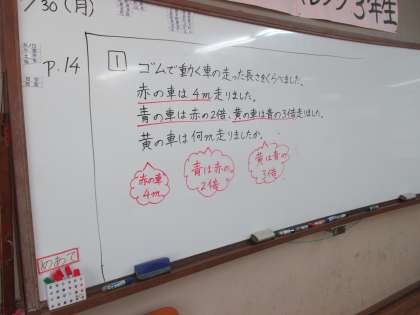 30(月)
3年生
p.14
1
ゴムで動く車の走った長さをくらべました。
赤の車は4m走りました。
青の車は赤の2倍、黄の車は青の3倍走りました。
黄の車は何m走りましたか。
赤の車
4m
青は赤の
2倍
黄は青の
3倍
めあて